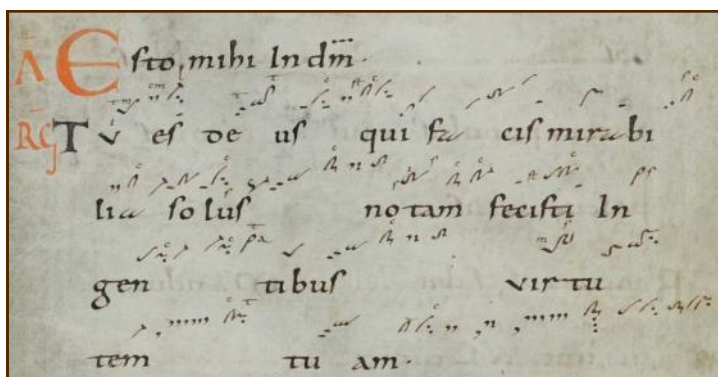 A Esto mihi In dm̅
RG Tu es de us qui fa cis mirabi
lia so lus no tam fecisti In
gen tibus virtu
tem tu am